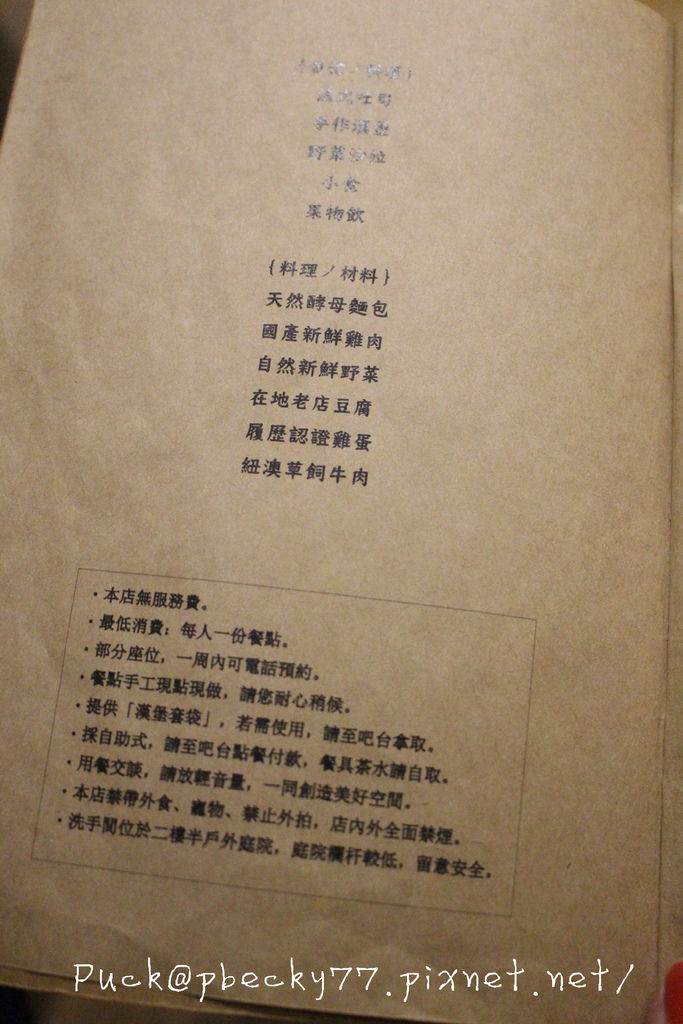 法式吐司
手作漢堡
野菜沙拉
小食
果物飲
{料理／材料}
天然酵母麵包
國產新鮮雞肉
自然新鮮野菜
在地老店豆腐
履歷認證雞蛋
紐澳草飼牛肉
·本店無服務費。
·最低消費；每人一份餐點。
·部分座位，一周內可電話預約。
·餐點手工現點現做，請您耐心稍候。
·提供「漢堡套袋」，若需使用，請至吧台拿取。
·採自助式，請至吧台點餐付款，餐具茶水請自取。
·用餐交談，請放輕音量，一同創造美好空間。
·本店禁帶外食、寵物、禁止外拍，店內外全面禁煙。
·洗手間位於二樓半戶外庭院，庭院欄杆較低，留意安全。
Puck@pbecky77.pixnet.net/